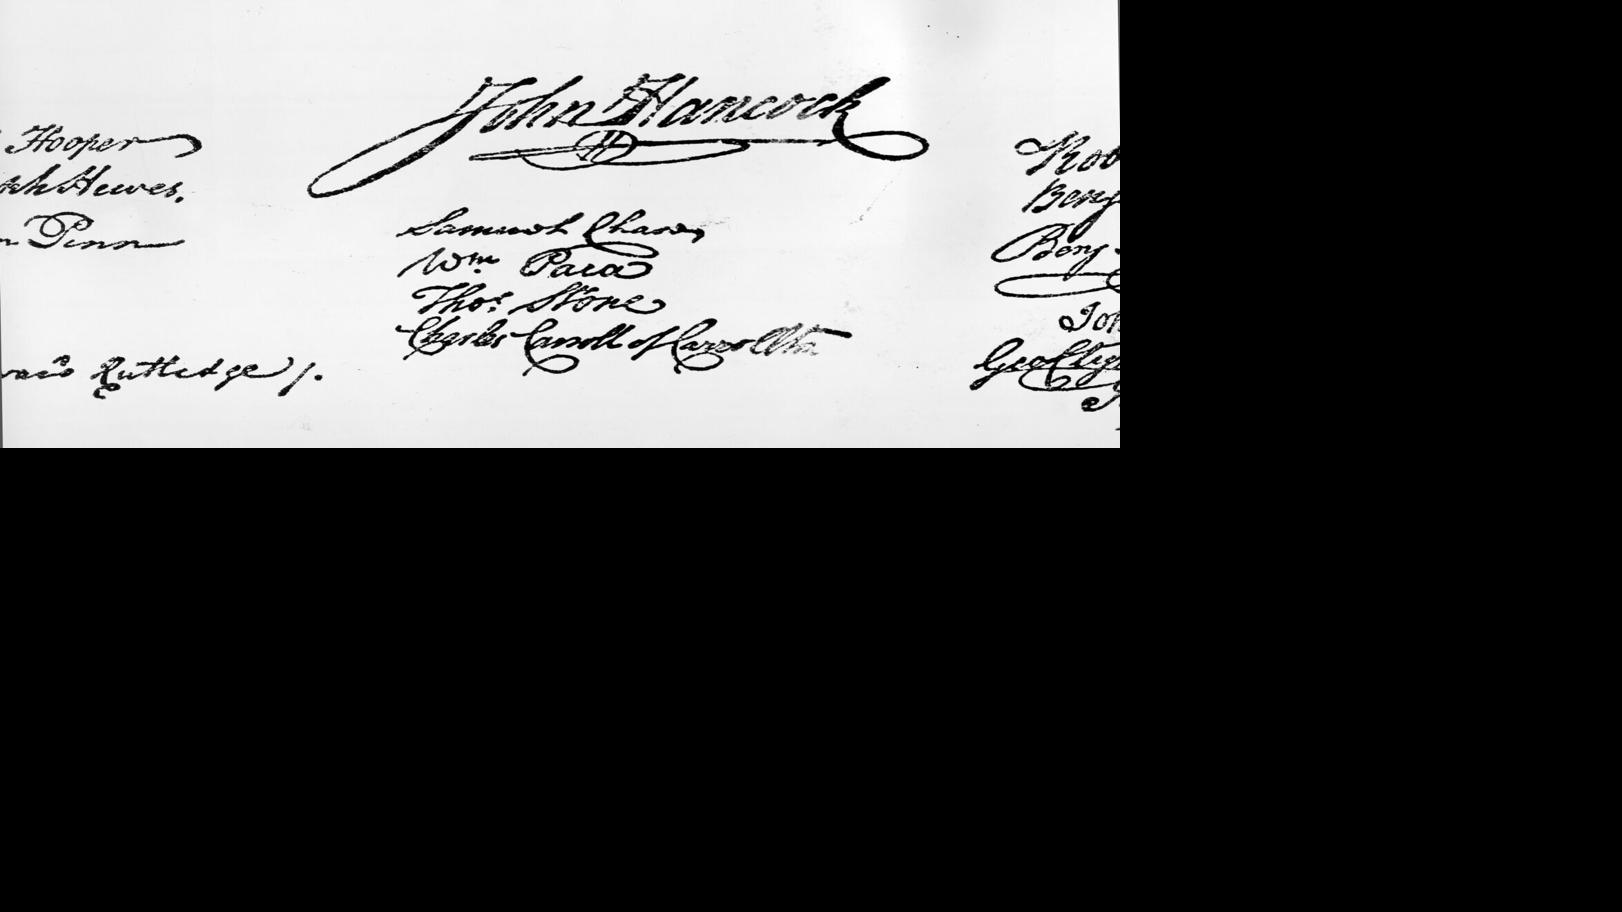 John Hancock
Hooper
Hewes.
Penn
Rutledge /.
Samuel Chase
Wm Paca
Thos. Stone
Charles Carroll of Carrollton
Rob
Benj
Benj
Joh
Geo Cly